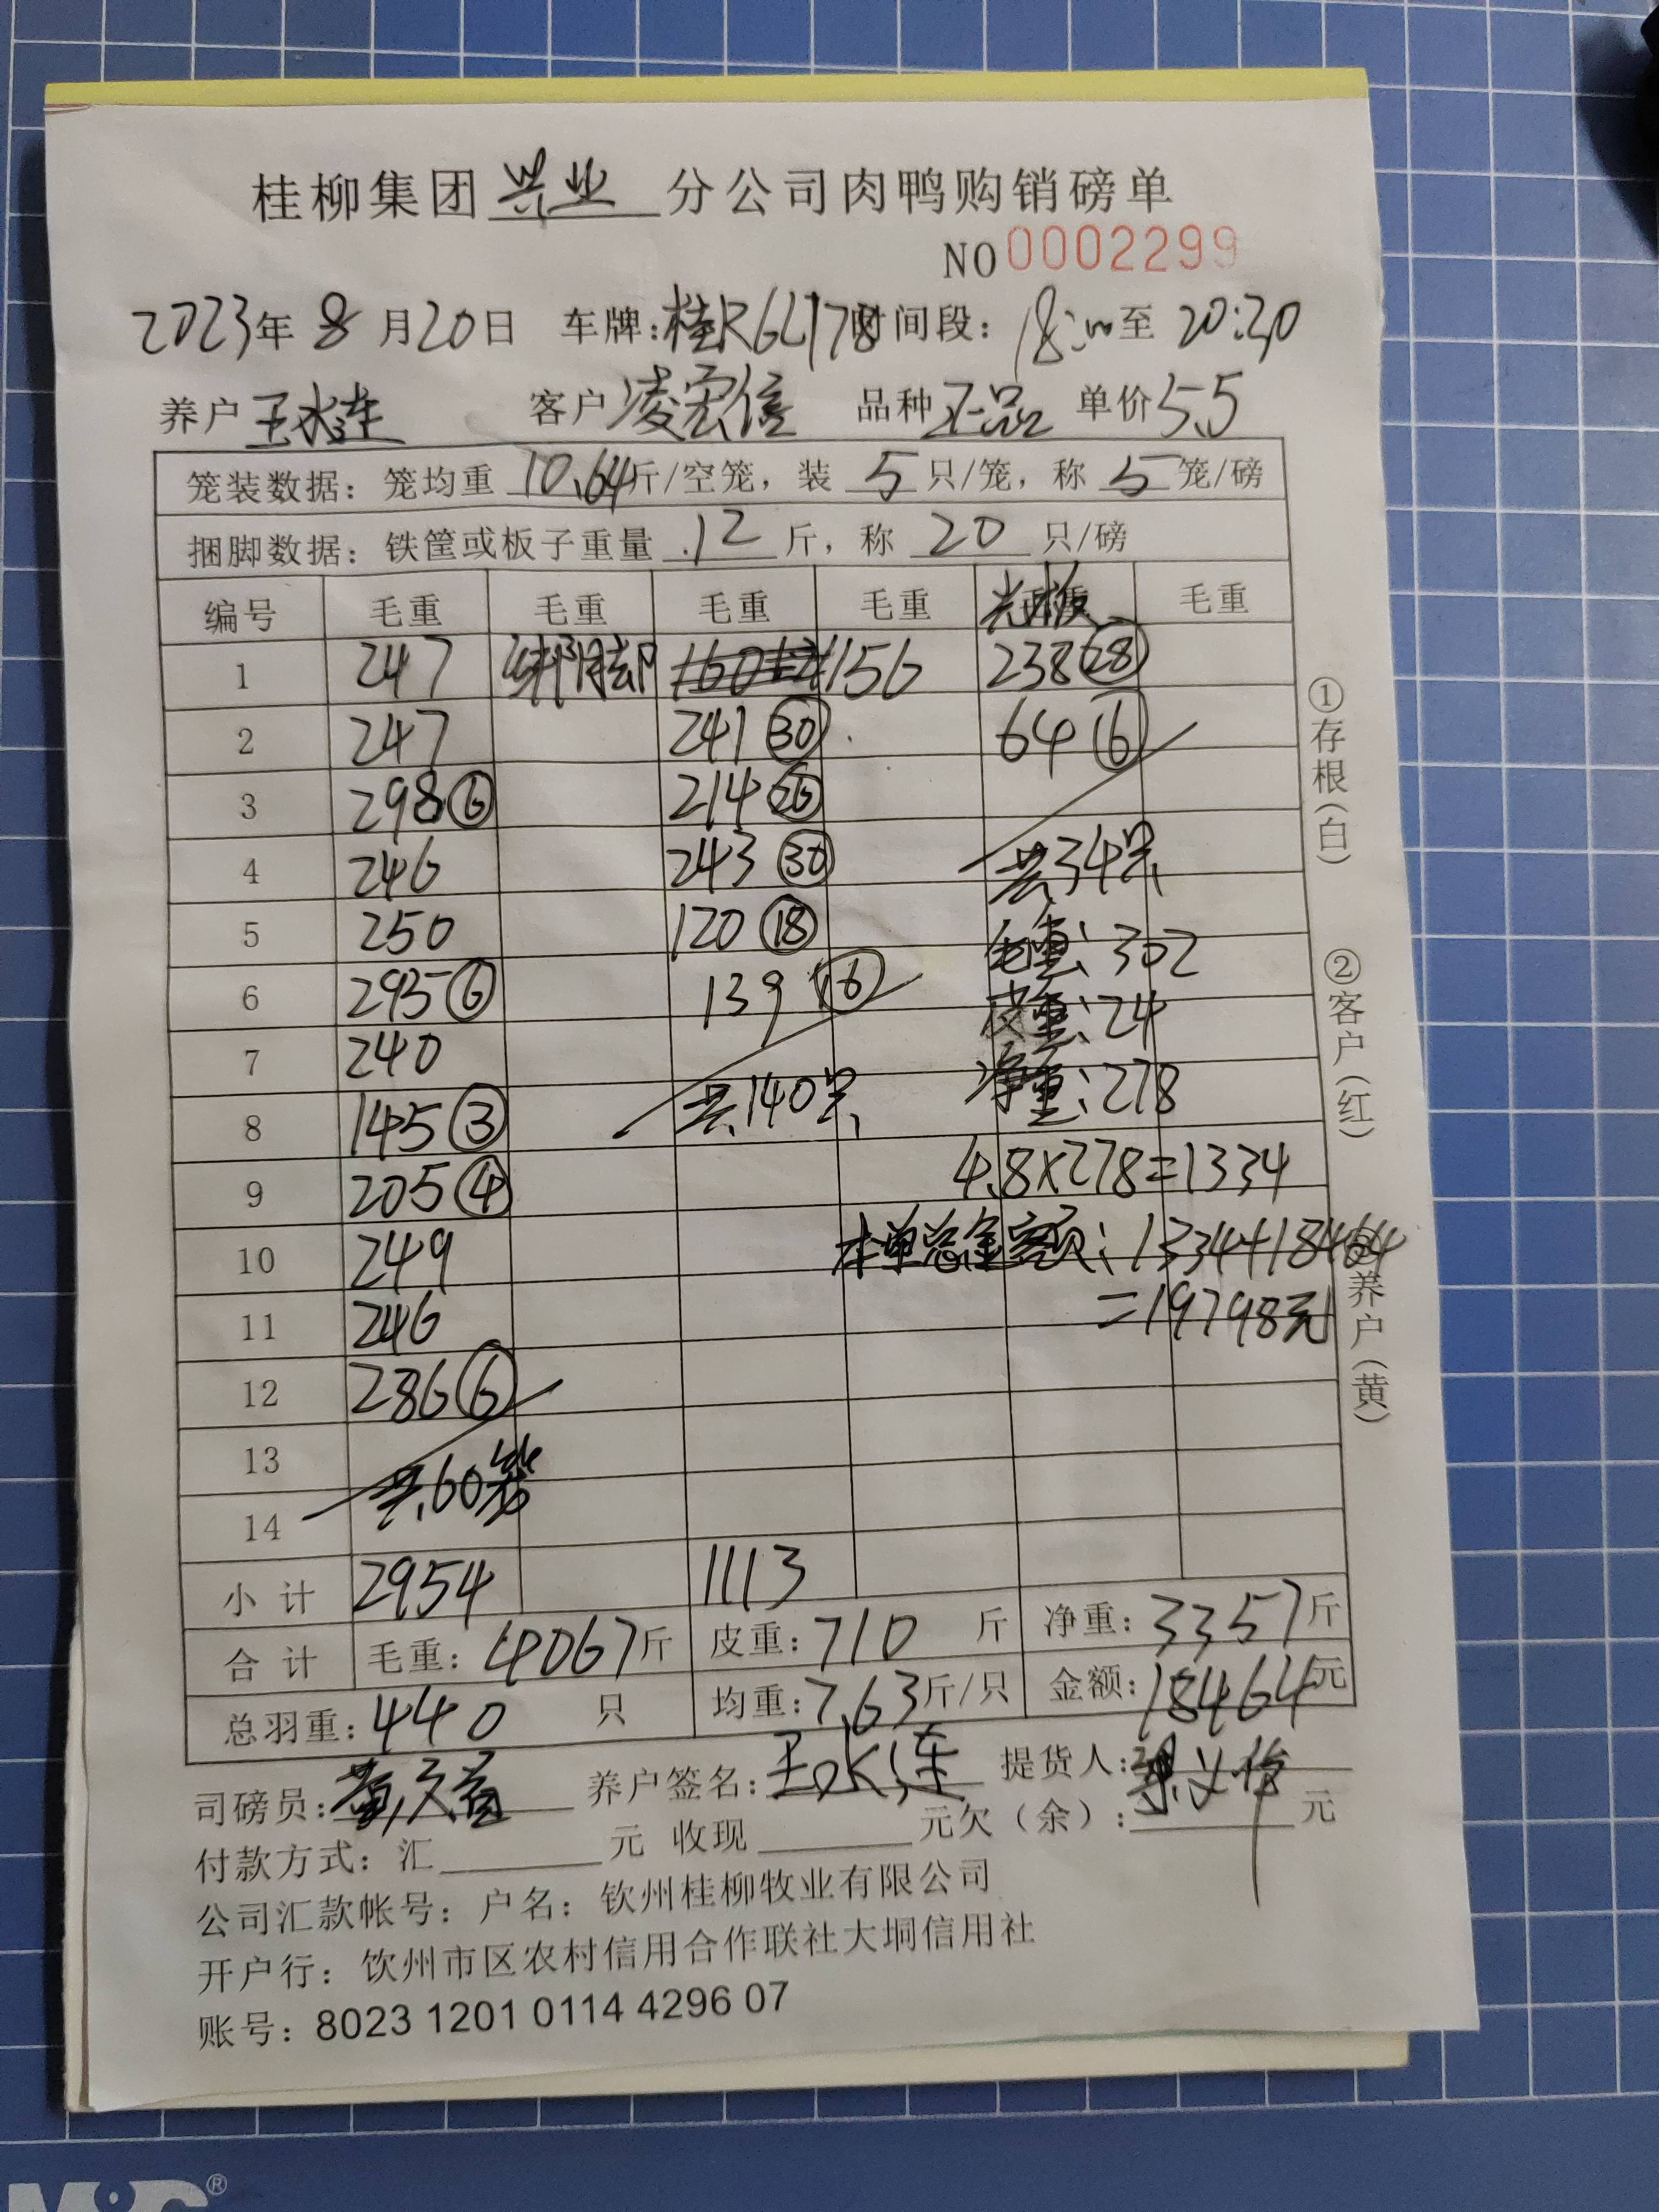 桂柳集团兴业分公司肉鸭购销磅单
NO 0002299
2023年8月20日 车牌:桂R6L178 时间段: 18:00至20:20
养户王水连 客户凌宏信 品种正品 单价5.5
笼装数据: 笼均重 10.64斤/空笼, 装 5 只/笼, 称 5 笼/磅
捆脚数据: 铁筐或板子重量 12 斤, 称 20 只/磅
编号 毛重 毛重 毛重 毛重 光板 毛重
1 247 绑脚 156 238 28
2 247 241 30 64 6
3 298 6 214 26
4 246 243 30 共34只
5 250 120 18 毛重:302
6 295 6 139 16 皮重:24
7 240 净重:278
8 145 3 共140只
9 205 4 4.8×278=1334
10 249 本单总金额:1334+18464
11 246 =19798元
12 286 6
13 共60笼
14
小计 2954 1113
合计 毛重: 4067斤 皮重:710 斤 净重:3357斤
总羽重:440 只 均重:7.63斤/只 金额:18464元
司磅员: 养户签名:王水连 提货人:
付款方式: 汇 元 收现 元欠(余): 元
公司汇款帐号: 户名: 钦州桂柳牧业有限公司
开户行: 钦州市区农村信用合作联社大垌信用社
账号: 8023 1201 0114 4296 07
①存根(白)
②客户(红)
养户(黄)
M&G®